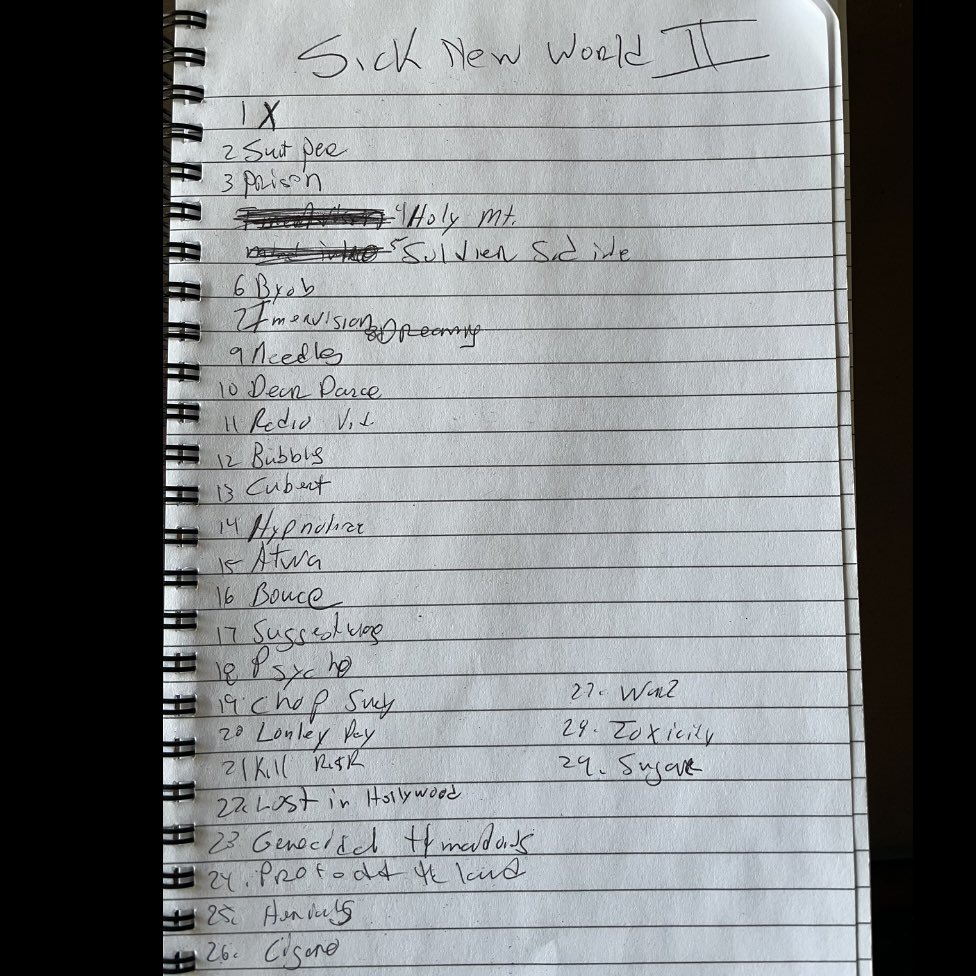 Sick New World II
1 X
2 Suit pee
3 Prison
4 Holy Mt.
5 Soldier Side
6 Byob
7 Innervision 8 Dreaming
9 Needles
10 Dear Dance
11 Radio Vid
12 Bubbles
13 Cubert
14 Hypnotize
15 Atwa
16 Bouce
17 Suggestions
18 Psycho
19. Chop Suey
20 Lonley Day
21 Kill Rock
22. Lost in Hollywood
23 Genocidal
24.
25.
26. Cigaro
27. War?
29. Toxicity
29. Sugar